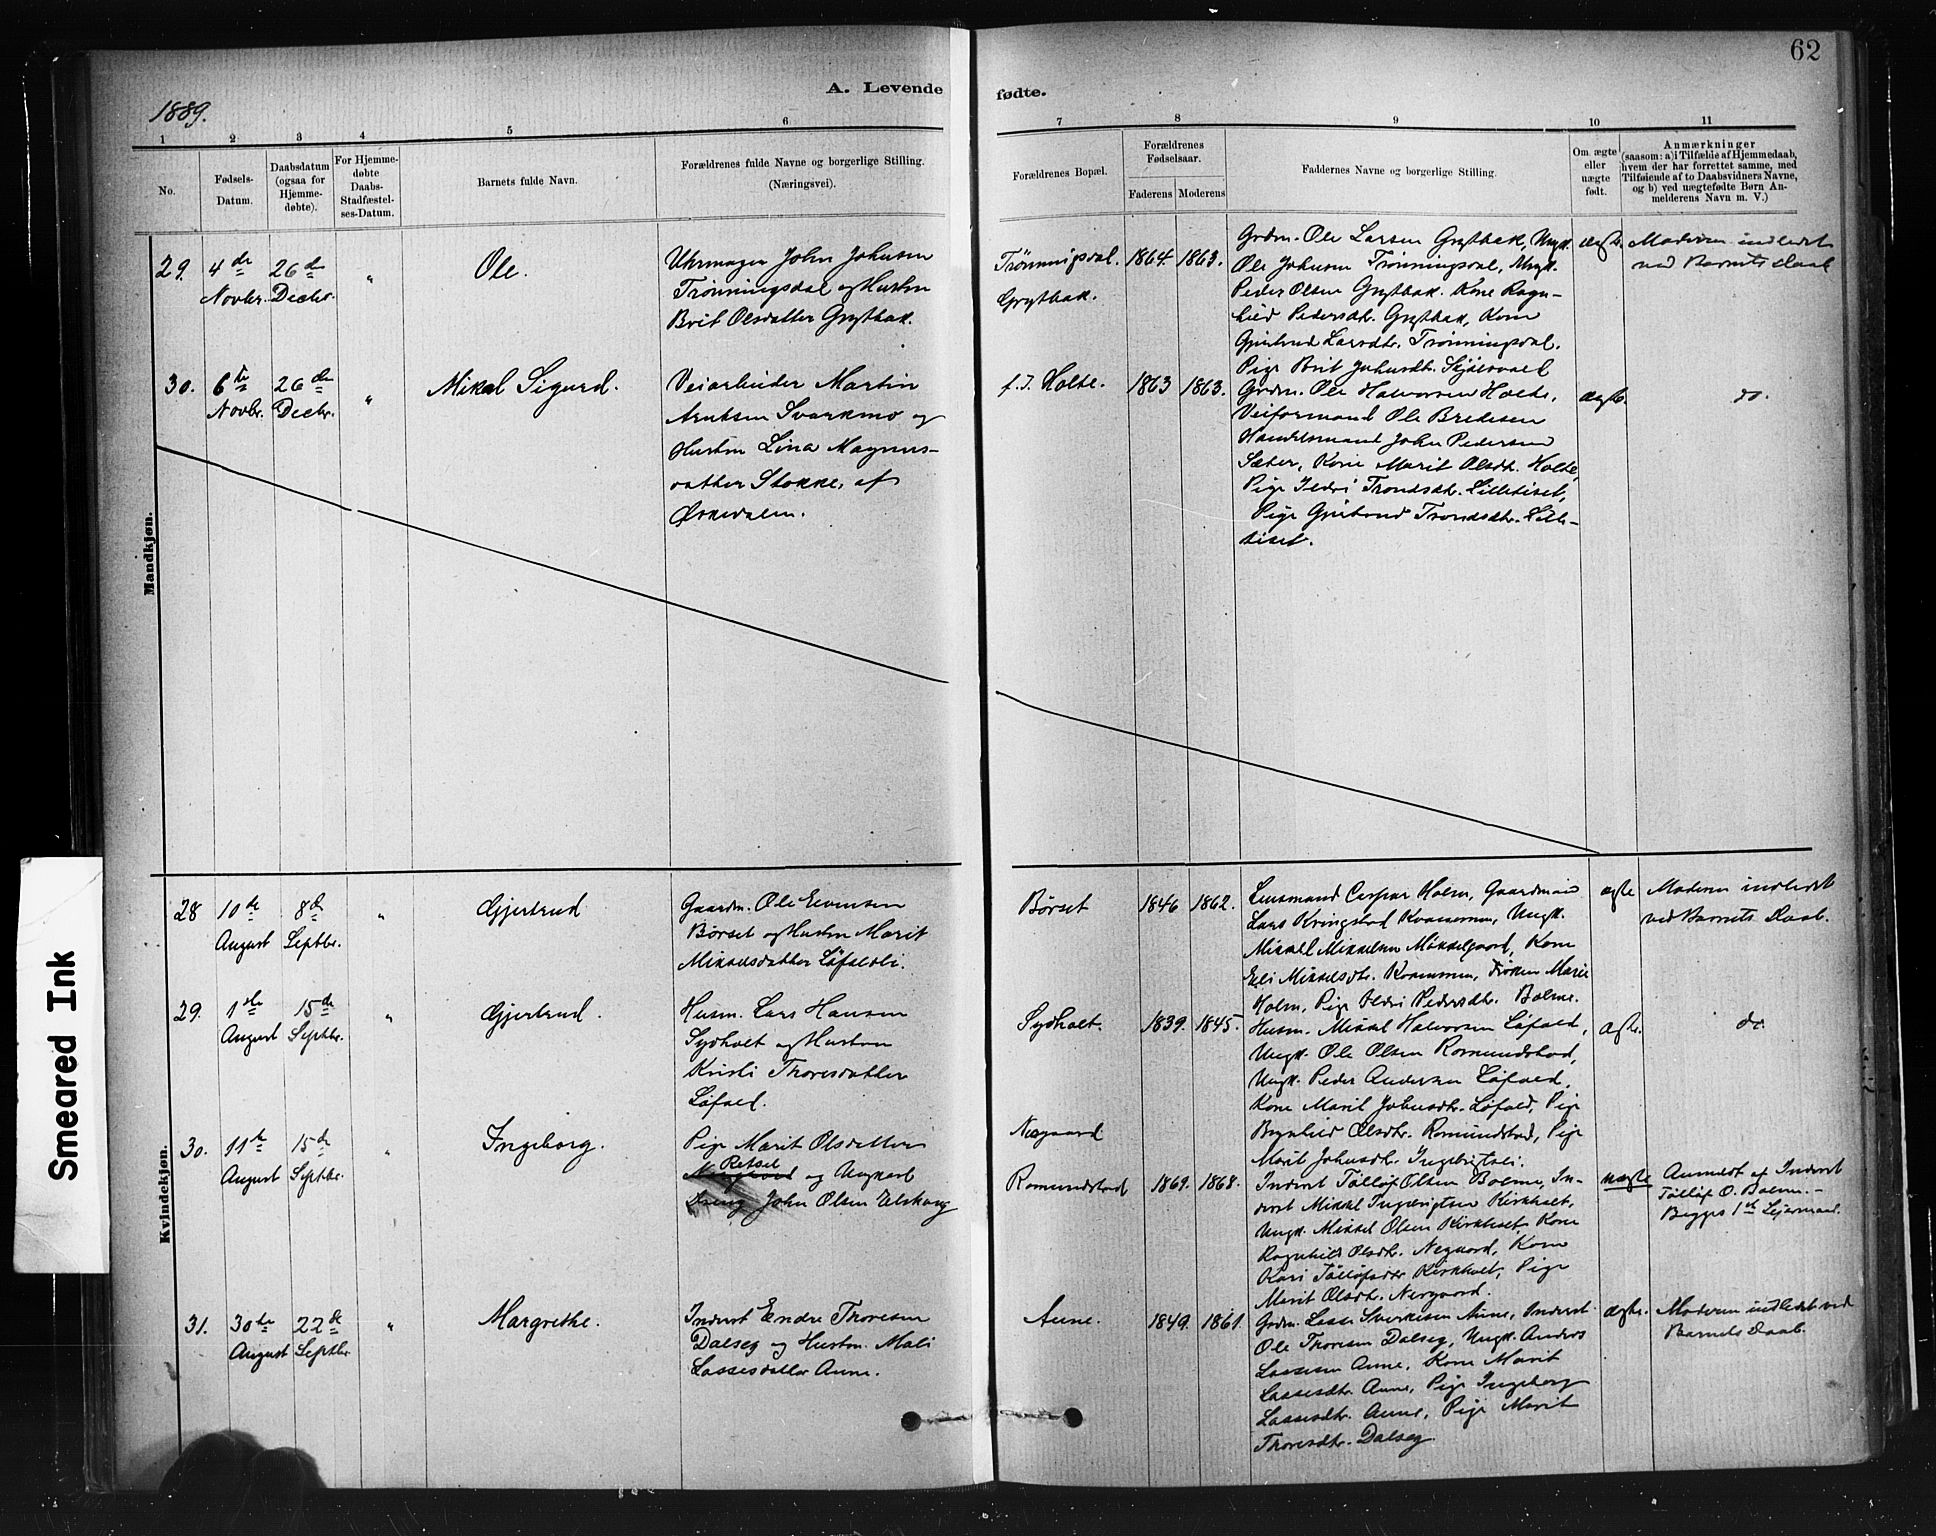 62
1889.
A. Levende fødte.
1 2 3 4 5 6 7 8 9 10 11
No.
Fødsels-Datum.
Daabsdatum (ogsaa for Hjemme-døbte).
For Hjemme-døbte Daabs-Stadfæstel-ses-Datum.
Barnets fulde Navn.
Forældrenes fulde Navne og borgerlige Stilling.
(Næringsvei).
Forældrenes Bopæl.
Forældrenes Fødselsaar.
Faderens Moderens
Faddernes Navne og borgerlige Stilling.
Om ægte eller uægte født.
Anmærkninger
(saasom: a) i Tilfælde af Hjemmedaab,
hvem der har forrettet samme, med
Tilføiende af to Daabsvidners Navne,
og b) ved uægtefødte Børn An-
melderens Navn m. V.)
Mandkjøn.
29. 4de Novbr. 26de Decbr. " Ole.
Uhrmager John Johnsen
Trønningsdal og Hustru
Brit Olsdatter Grytbak.
Trønningsdal.
Grytbak.
1864. 1863.
Grdm. Ole Larsen Grytbak, Ungk.
Ole Johnsen Trønningsdal, Ungk.
Peder Olsen Grytbak. Kone Ragn-
hild Pedersdtr. Grytbak, Kone
Gjertrud Larsdtr. Trønningsdal.
Pige Brit Johnsdtr.
ægte.
Moderen indledet
ved Barnets Daab
30. 6te Novbr. 26de Decbr. " Mikal Sigurd.
Veiarbeider Martin
Arntsen Svarkmo og
Hustru Lina Magnus-
datter Stokke, af
Ørkedalen.
f. T. Holte.
1863 1863.
Grdm. Ole Halvorsen Holte,
Veiformand Ole Bredesen
Handelsmand John Pedersen
Sæter, Kone Marit Olsdtr. Holte,
Pige Ildri Trondsdtr. Lilletiset,
Pige Gjertrud Trondsdtr. Lille-
tiset.
ægte.
do.
Kvindekjøn.
28 10de August 8de Septbr. " Gjertrud
Gaardm. Ole Evensen
Børset og Hustru Marit
Mikkelsdatter Løfaldli.
Børset
1846 1862.
Lensmand Caspar Holm, Gaardmand
Lars Kringstad Kvammen, Ungk.
Mikkel Mikkelsen Mikkelgaard, Kone
Eli Mikkelsdtr. Kvammen, Frøken Marie
Holm, Pige Ildri Pedersdtr. Bolme.
ægte
Moderen indledet
ved Barnets Daab.
29. 1ste August 15de Septbr. " Gjertrud.
Husm. Lars Hansen
Sydhalt og Hustru
Kristi Thoresdatter
Løfald.
Sydhalt.
1839. 1845.
Husm. Mikkel Halvorsen Løfald,
Ungk. Ole Olsen Romundstad,
Ungk. Peder Andersen Løfald,
Kone Marit Johnsdtr. Løfald, Pige
Ragnhild Olsdtr. Romundstad, Pige
Marit Johnsdtr. Ingebrigtsli.
ægte.
do.
30. 11te August 15de Septbr. " Ingeborg.
Pige Marit Olsdatter
Retsel og Ungkarl
Dreng John Olsen Elshaug
Nergaard
Romundstad
1869. 1868.
Inderst Tølløf Olsen Bolme, In-
derst Mikkel Ingebrigtsen Kirkholt,
Ungk. Mikkel Olsen Kirkholt, Kone
Ragnhild Olsdtr. Negaard, Kone
Kari Tølløfsdtr. Kirkholt, Pige
Marit Olsdtr. Nergaard.
uægte
Anmeldt af Inderst
Tølløf O. Bolme.-
Begges 1ste Leiermaal.
31. 30te August 22de Septbr. " Margrethe.
Inderst Endre Thoresen
Dalseg og Hustru Mali
Lassesdatter Aune.
Aune.
1849. 1861.
Grdm. Lasse Sverkesen Aune, Inderst
Ole Thoresen Dalseg, Ungk. Anders
Lassesen Aune, Kone Marit
Lassesdtr. Aune, Pige Ingeborg
Lassesdtr. Aune, Pige Marit
Thoresdtr. Dalseg.
ægte.
Moderen indledet ved
Barnets Daab.
Smeared Ink